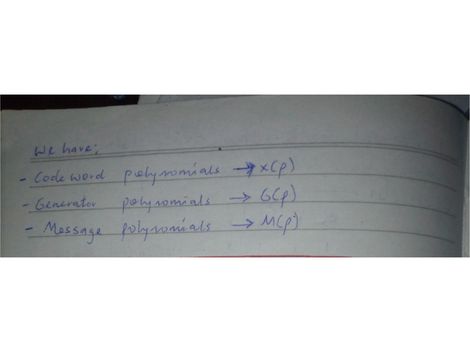 We have;
- Codeword polynomials → X(p)
- Generator polynomials → G(p)
- Message polynomials → M(p)